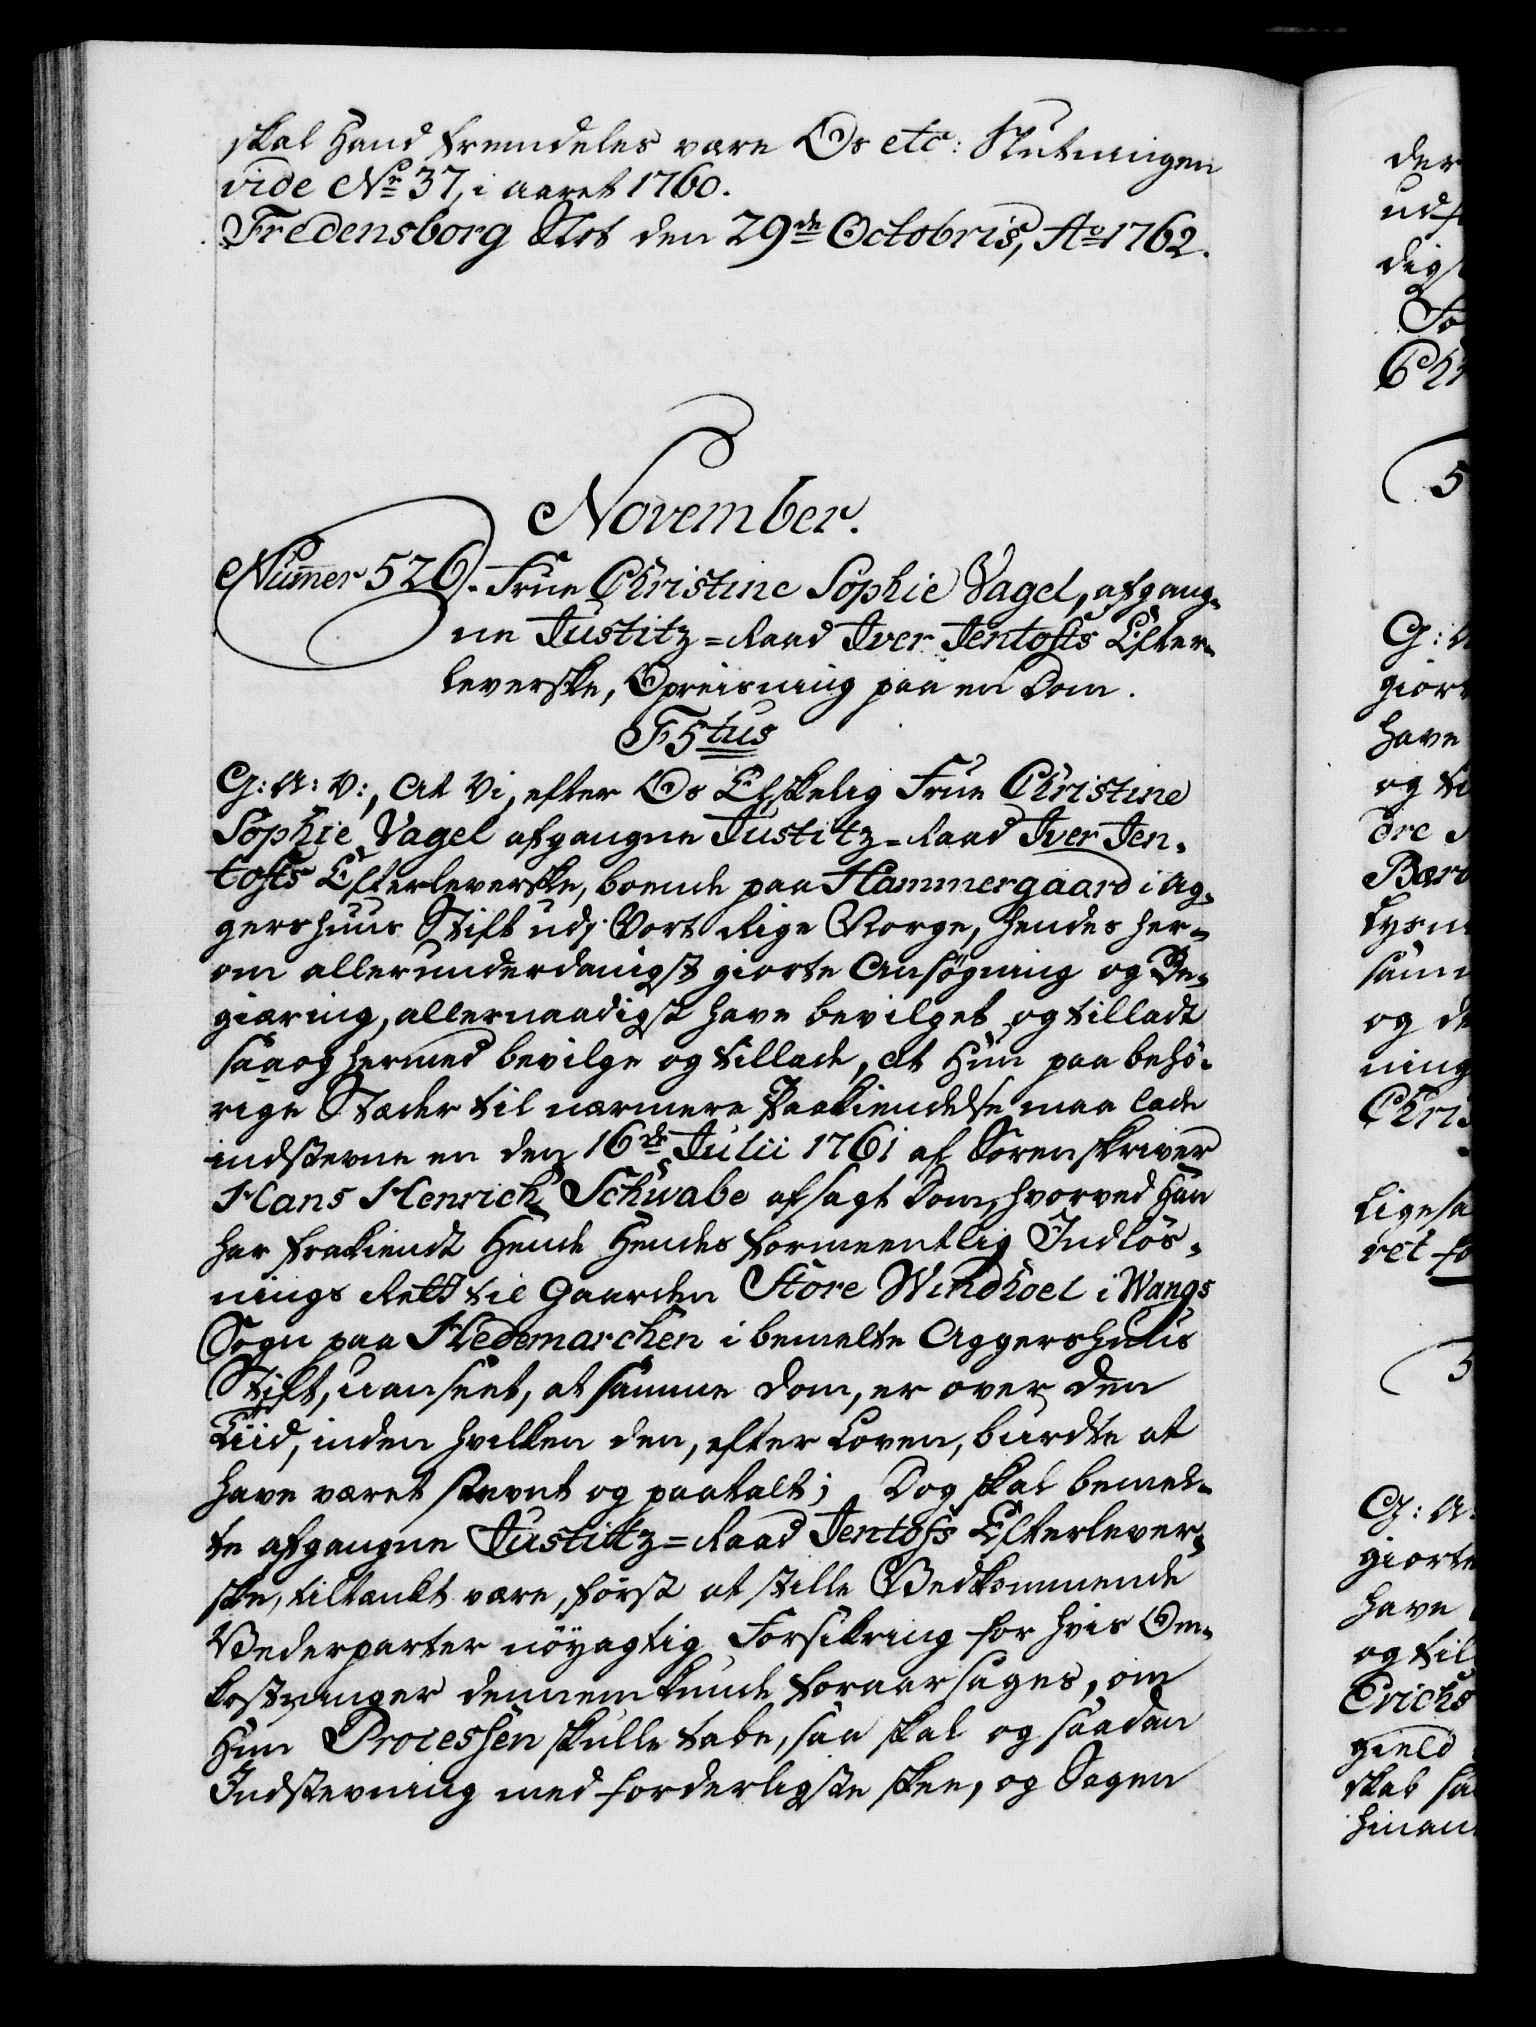 skal Hand fremdeles være Os etc: Slutningen
vide No 37, i aaret 1760.
Fredensborg Slot den 29de Octobris, Ao 1762.
November.
Numer 526. Frue Christine Sophie Vagel, afgang-
ne Justitz-Raad Iver Jentofts Efter-
leverske, Opreisning paa en Dom.
F5tus
G: A: V:, At Vi, efter Os Elskelig Frue Christine
Sophie Vagel afgangne Justitz-Raad Iver Jen-
tofts Efterleverske, boende paa Hammergaard i Ag-
gershuus Stift udj Vort Rige Norge, hendes her-
om allerunderdanigst giorte Ansøgning og Be-
giæring, allernaadigst have bevilget og tilladt
saa og hermed bevilge og tillade, At Hun paa behö-
rige Stæder til nærmere Paakiendelse maa lade
indstevne en den 16de Julii 1761 af Sorenskriver
Hans Henrich Schwabe afsagt Dom, hvorved Han
har frakiendt Hende Hendes formeentlig Indlös-
nings Rett til Gaarden Store Windkoel i Wangs
Sogn paa Hedemarchen i bemelte Aggershuus
Stift, uanseet, at samme Dom, er over den
Tiid, inden hvilken den, efter Loven, burdte at
have været stevnt og paatalt; Dog skal bemel-
te afgangne Justitz-Raad Jentofs Efterlever-
ske, tiltænkt være, först at stille Vedkommende
Vederparter nöyagtig Forsikring for hvis Om-
kostninger dennem kunde foraarsages, om
Hun Processen skulle tabe, saa skal og saadan
Indstevning med forderligste skee, og Sagen